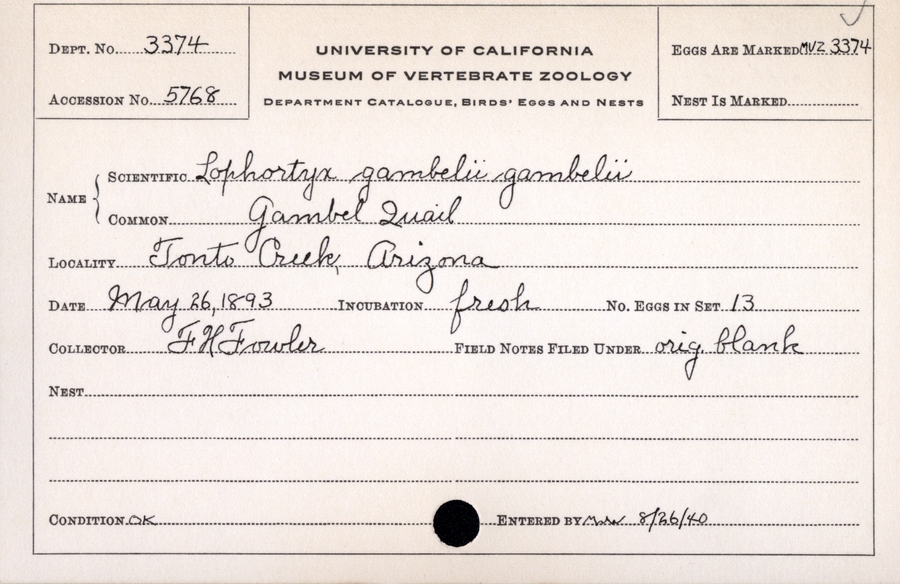 Dept. No. 3374
Accession No. 5768
UNIVERSITY OF CALIFORNIA
MUSEUM OF VERTEBRATE ZOOLOGY
Department Catalogue, Birds' Eggs and Nests
Eggs Are Marked MVZ 3374
Nest Is Marked
Name
Scientific Lophortyx gambelii gambelii
Common Gambel Quail
Locality Tonto Creek, Arizona
Date May 26, 1893 Incubation fresh No. Eggs in Set 13
Collector F H Fowler Field Notes Filed Under orig. blank
Nest
Condition OK Entered by 8/26/40